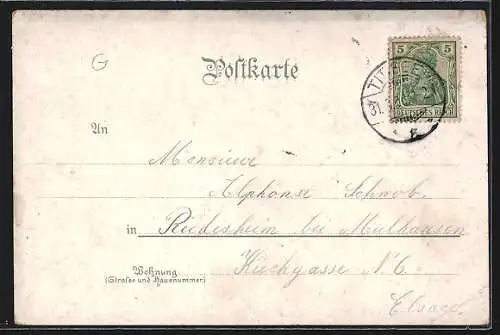 G
Postkarte
5
DEUTSCHES REICH
TITISEE
31.
An
Monsieur
Alphonse Schwob.
in Riedisheim bei Mülhausen
Wohnung
(Straße und Hausnummer)
Kirchgasse N. 6.
Elsass.